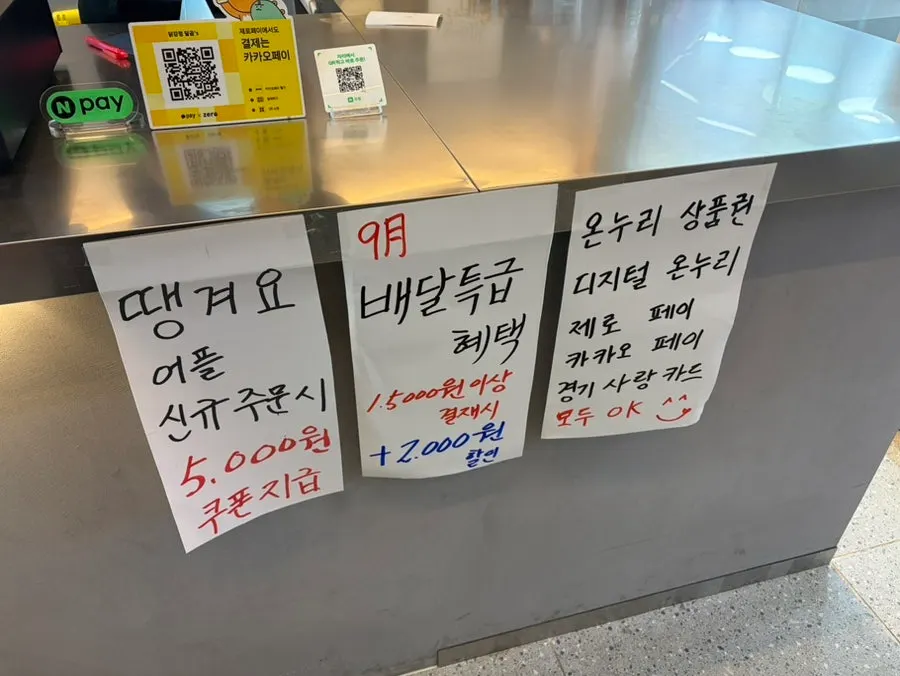 N pay
제로페이에서도
결제는
카카오페이
pay × zero
땡겨요
어플
신규 주문시
5.000원
쿠폰지급
9月
배달특급
혜택
1.5000원 이상
결재시
+2.000원
할인
온누리 상품권
디지털 온누리
제로 페이
카카오 페이
경기 사랑 카드
모두 OK ^^